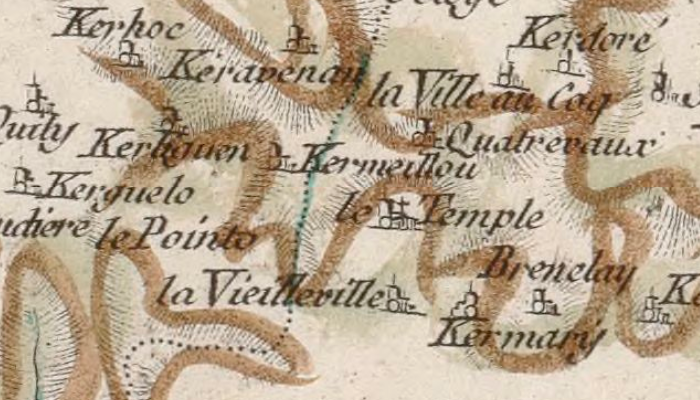 Kerhoc
Kerdoré
Keravenau
la Ville au Coq
Quily
Quatrevaux
Kermeillou
Kerguelo
le Temple
le Pointo
Brenclay
la Vieilleville
Kermary